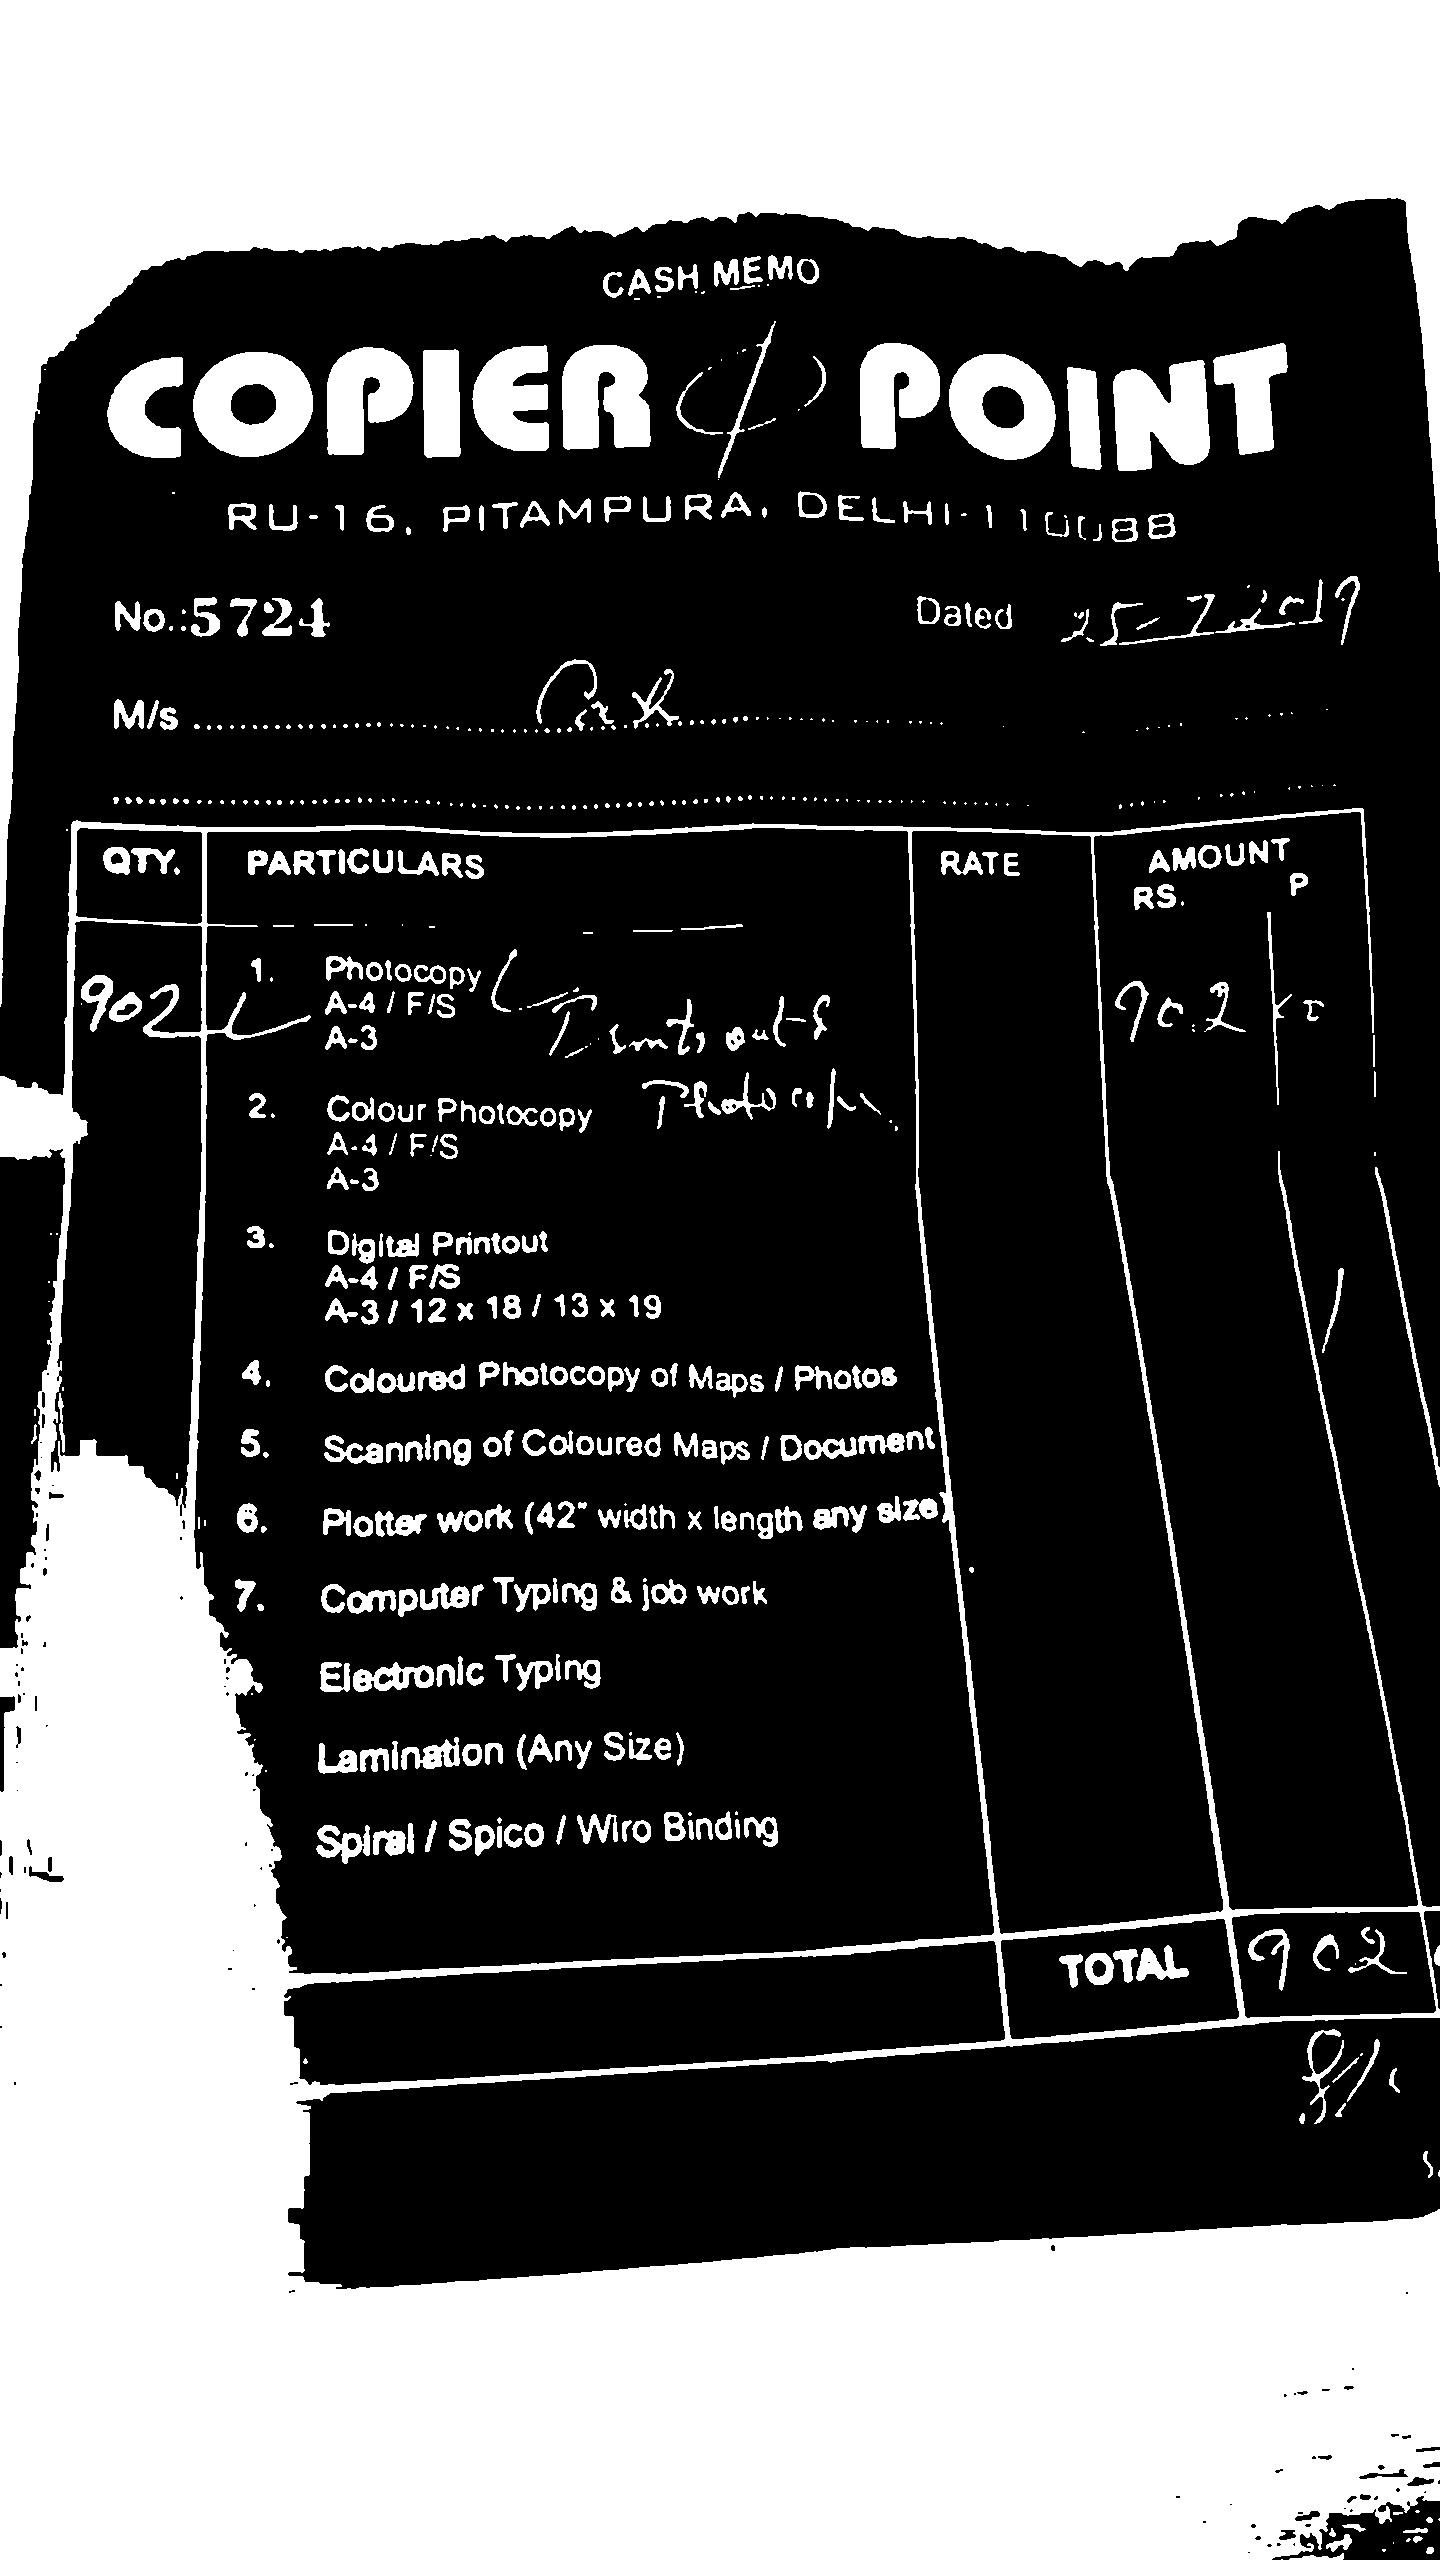 CASH MEMO
COPIER POINT
RU-16, PITAMPURA, DELHI-110088
No.:5724 Dated 25-7.2019
M/s Cash
QTY. PARTICULARS RATE AMOUNT
RS. P
902 1. Photocopy 902
A-4 / F/S out &
A-3
2. Colour Photocopy Photocopy
A-4 / F/S
A-3
3. Digital Printout
A-4 / F/S
A-3 / 12 x 18 / 13 x 19
4. Coloured Photocopy of Maps / Photos
5. Scanning of Coloured Maps / Document
6. Plotter work (42" width x length any size)
7. Computer Typing & job work
Electronic Typing
Lamination (Any Size)
Spiral / Spico / Wiro Binding
TOTAL 902